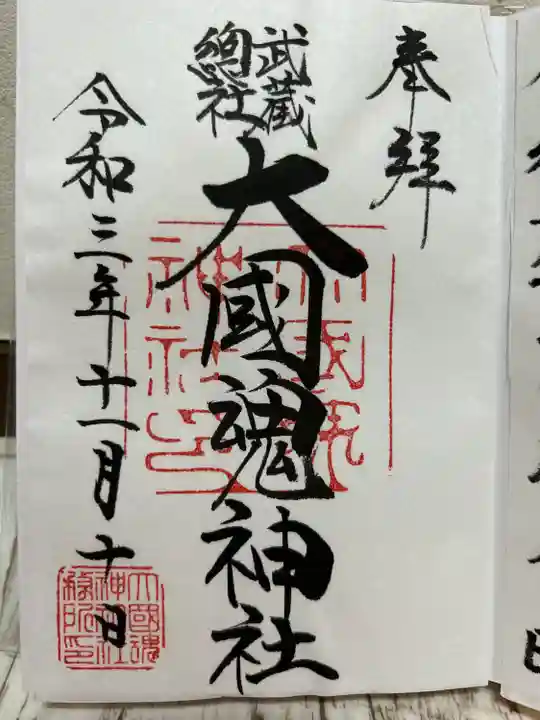 奉拝
武蔵
總社
大國魂神社
令和三年十一月十日
大國魂
神社